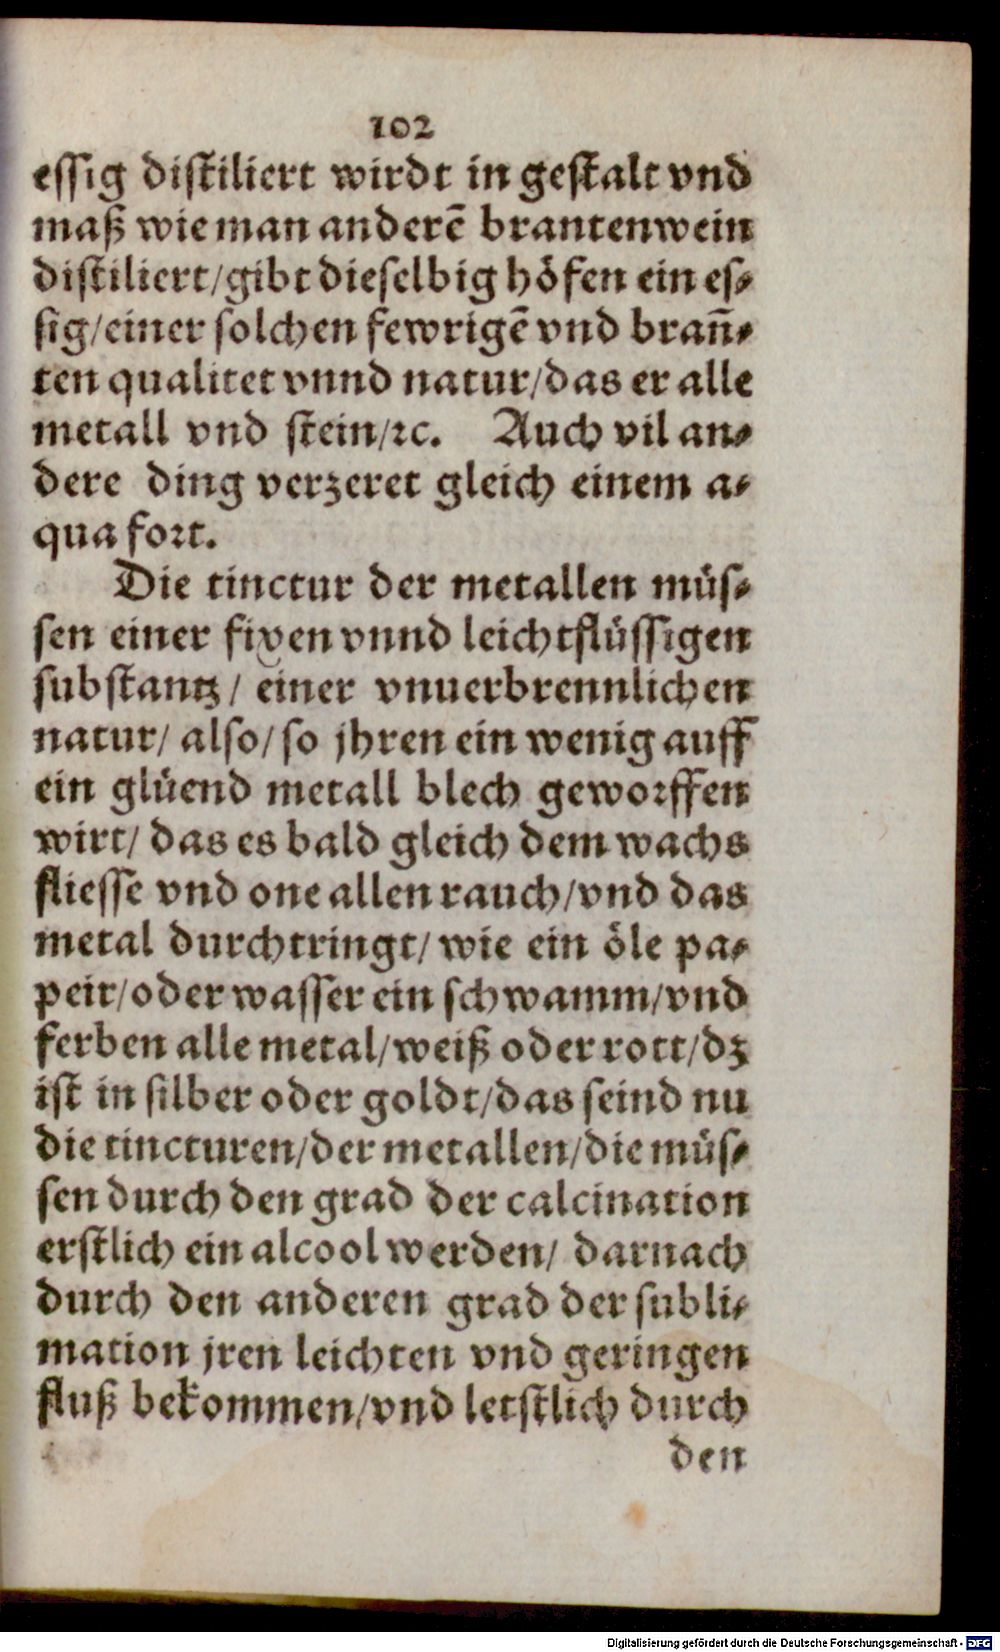 102
essig distiliert wirdt in gestalt vnd
maß wie man anderẽ brantenwein
distiliert/gibt dieselbig höfen ein es⸗
sig/einer solchen fewrigẽ vnd brañ⸗
ten qualitet vnnd natur/das er alle
metall vnd stein/ꝛc. Auch vil an⸗
dere ding verzeret gleich einem a⸗
qua fort.
Die tinctur der metallen müs⸗
sen einer fixen vnnd leichtflüssigen
substantz/ einer vnuerbrennlichen
natur/ also/ so jhren ein wenig auff
ein glüend metall blech geworffen
wirt/ das es bald gleich dem wachs
fliesse vnd one allen rauch/vnd das
metal durchtringt/ wie ein öle pa⸗
peir/oder wasser ein schwamm/vnd
ferben alle metal/weiß oder rott/dz
ist in silber oder goldt/das seind nu
die tincturen/der metallen/die müs⸗
sen durch den grad der calcination
erstlich ein alcool werden/ darnach
durch den anderen grad der subli⸗
mation jren leichten vnd geringen
fluß bekommen/vnd letstlich durch
den
Digitalisierung gefördert durch die Deutsche Forschungsgemeinschaft - DFG